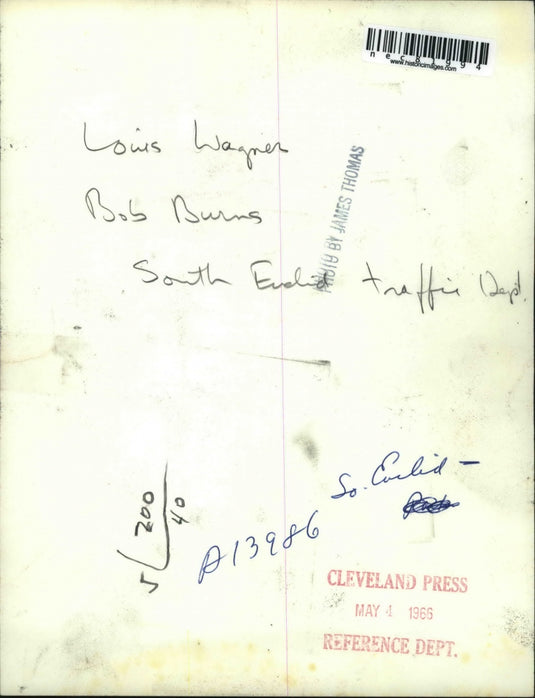 nec81994
www.historicimages.com
Louis Wagner
Bob Burns
PHOTO BY JAMES THOMAS
South Euclid traffic Dept.
So. Euclid –
5 200
40
A13986
CLEVELAND PRESS
MAY 4 1966
REFERENCE DEPT.